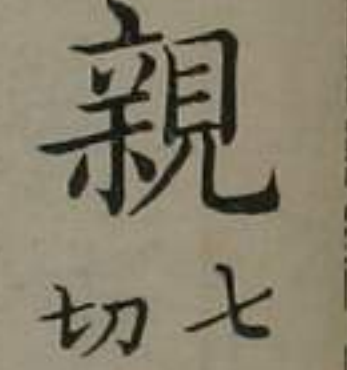 親
七切